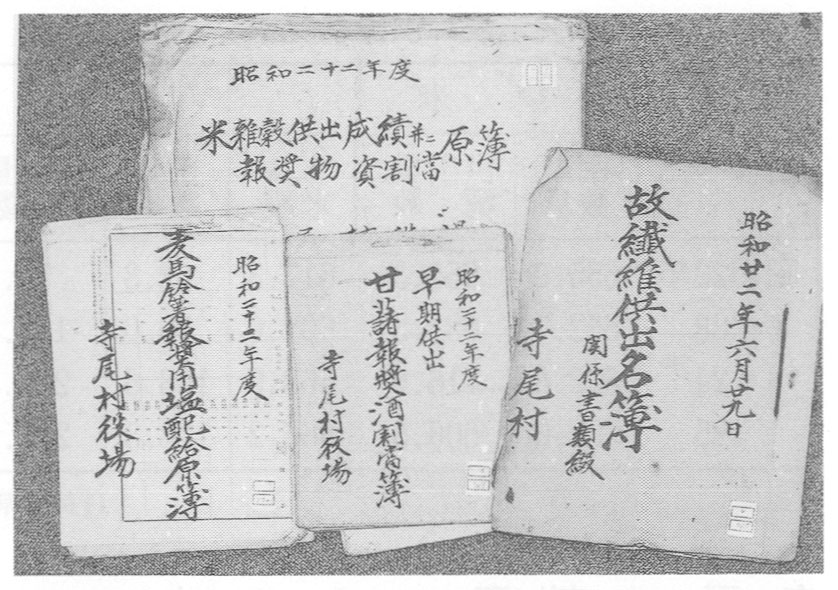 昭和二十二年度
米雑穀供出成績並ニ原簿
報奨物資割當
昭和廿二年六月廿九日
故繊維供出名簿
関係書類綴
寺尾村
昭和二十二年度
早期供出
甘藷報奨酒割當簿
寺尾村役場
昭和二十二年度
麦馬鈴薯報奨用塩配給原簿
寺尾村役場